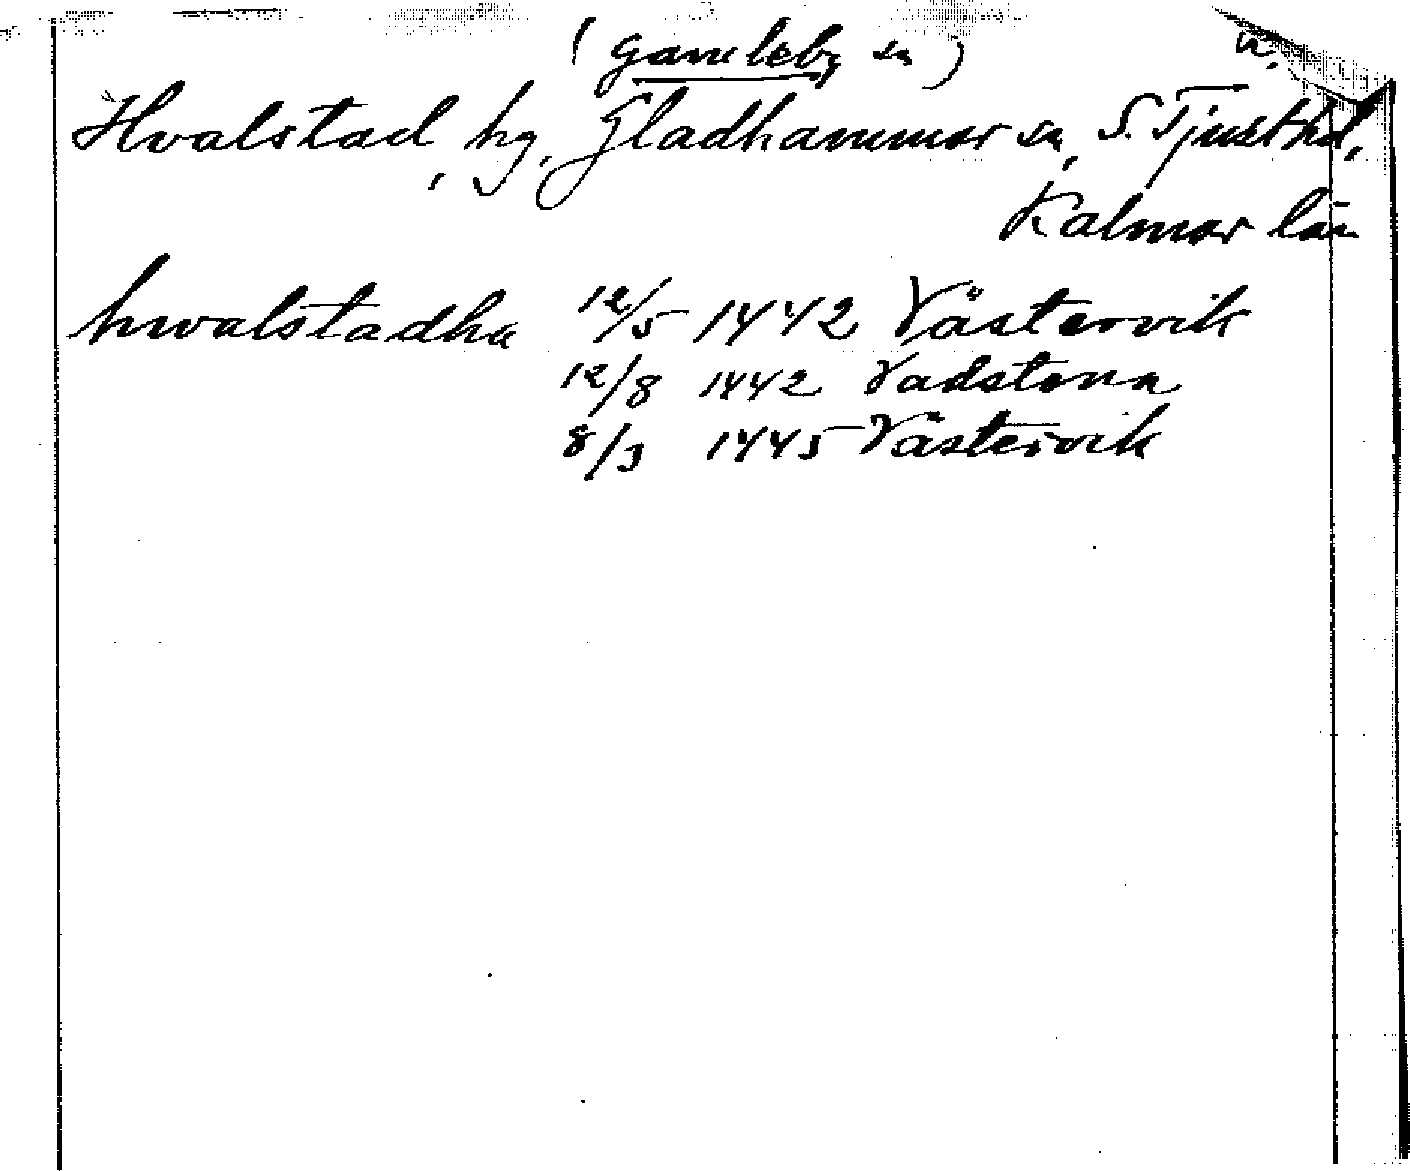 (Gamleby sn) n.
Hvalstad, hg, Gladhammar sn, S. Tjust hd,
Kalmar län
hwalstadha 12/5 1442 Västervik
12/8 1442 Vadstena
8/3 1445 Västervik